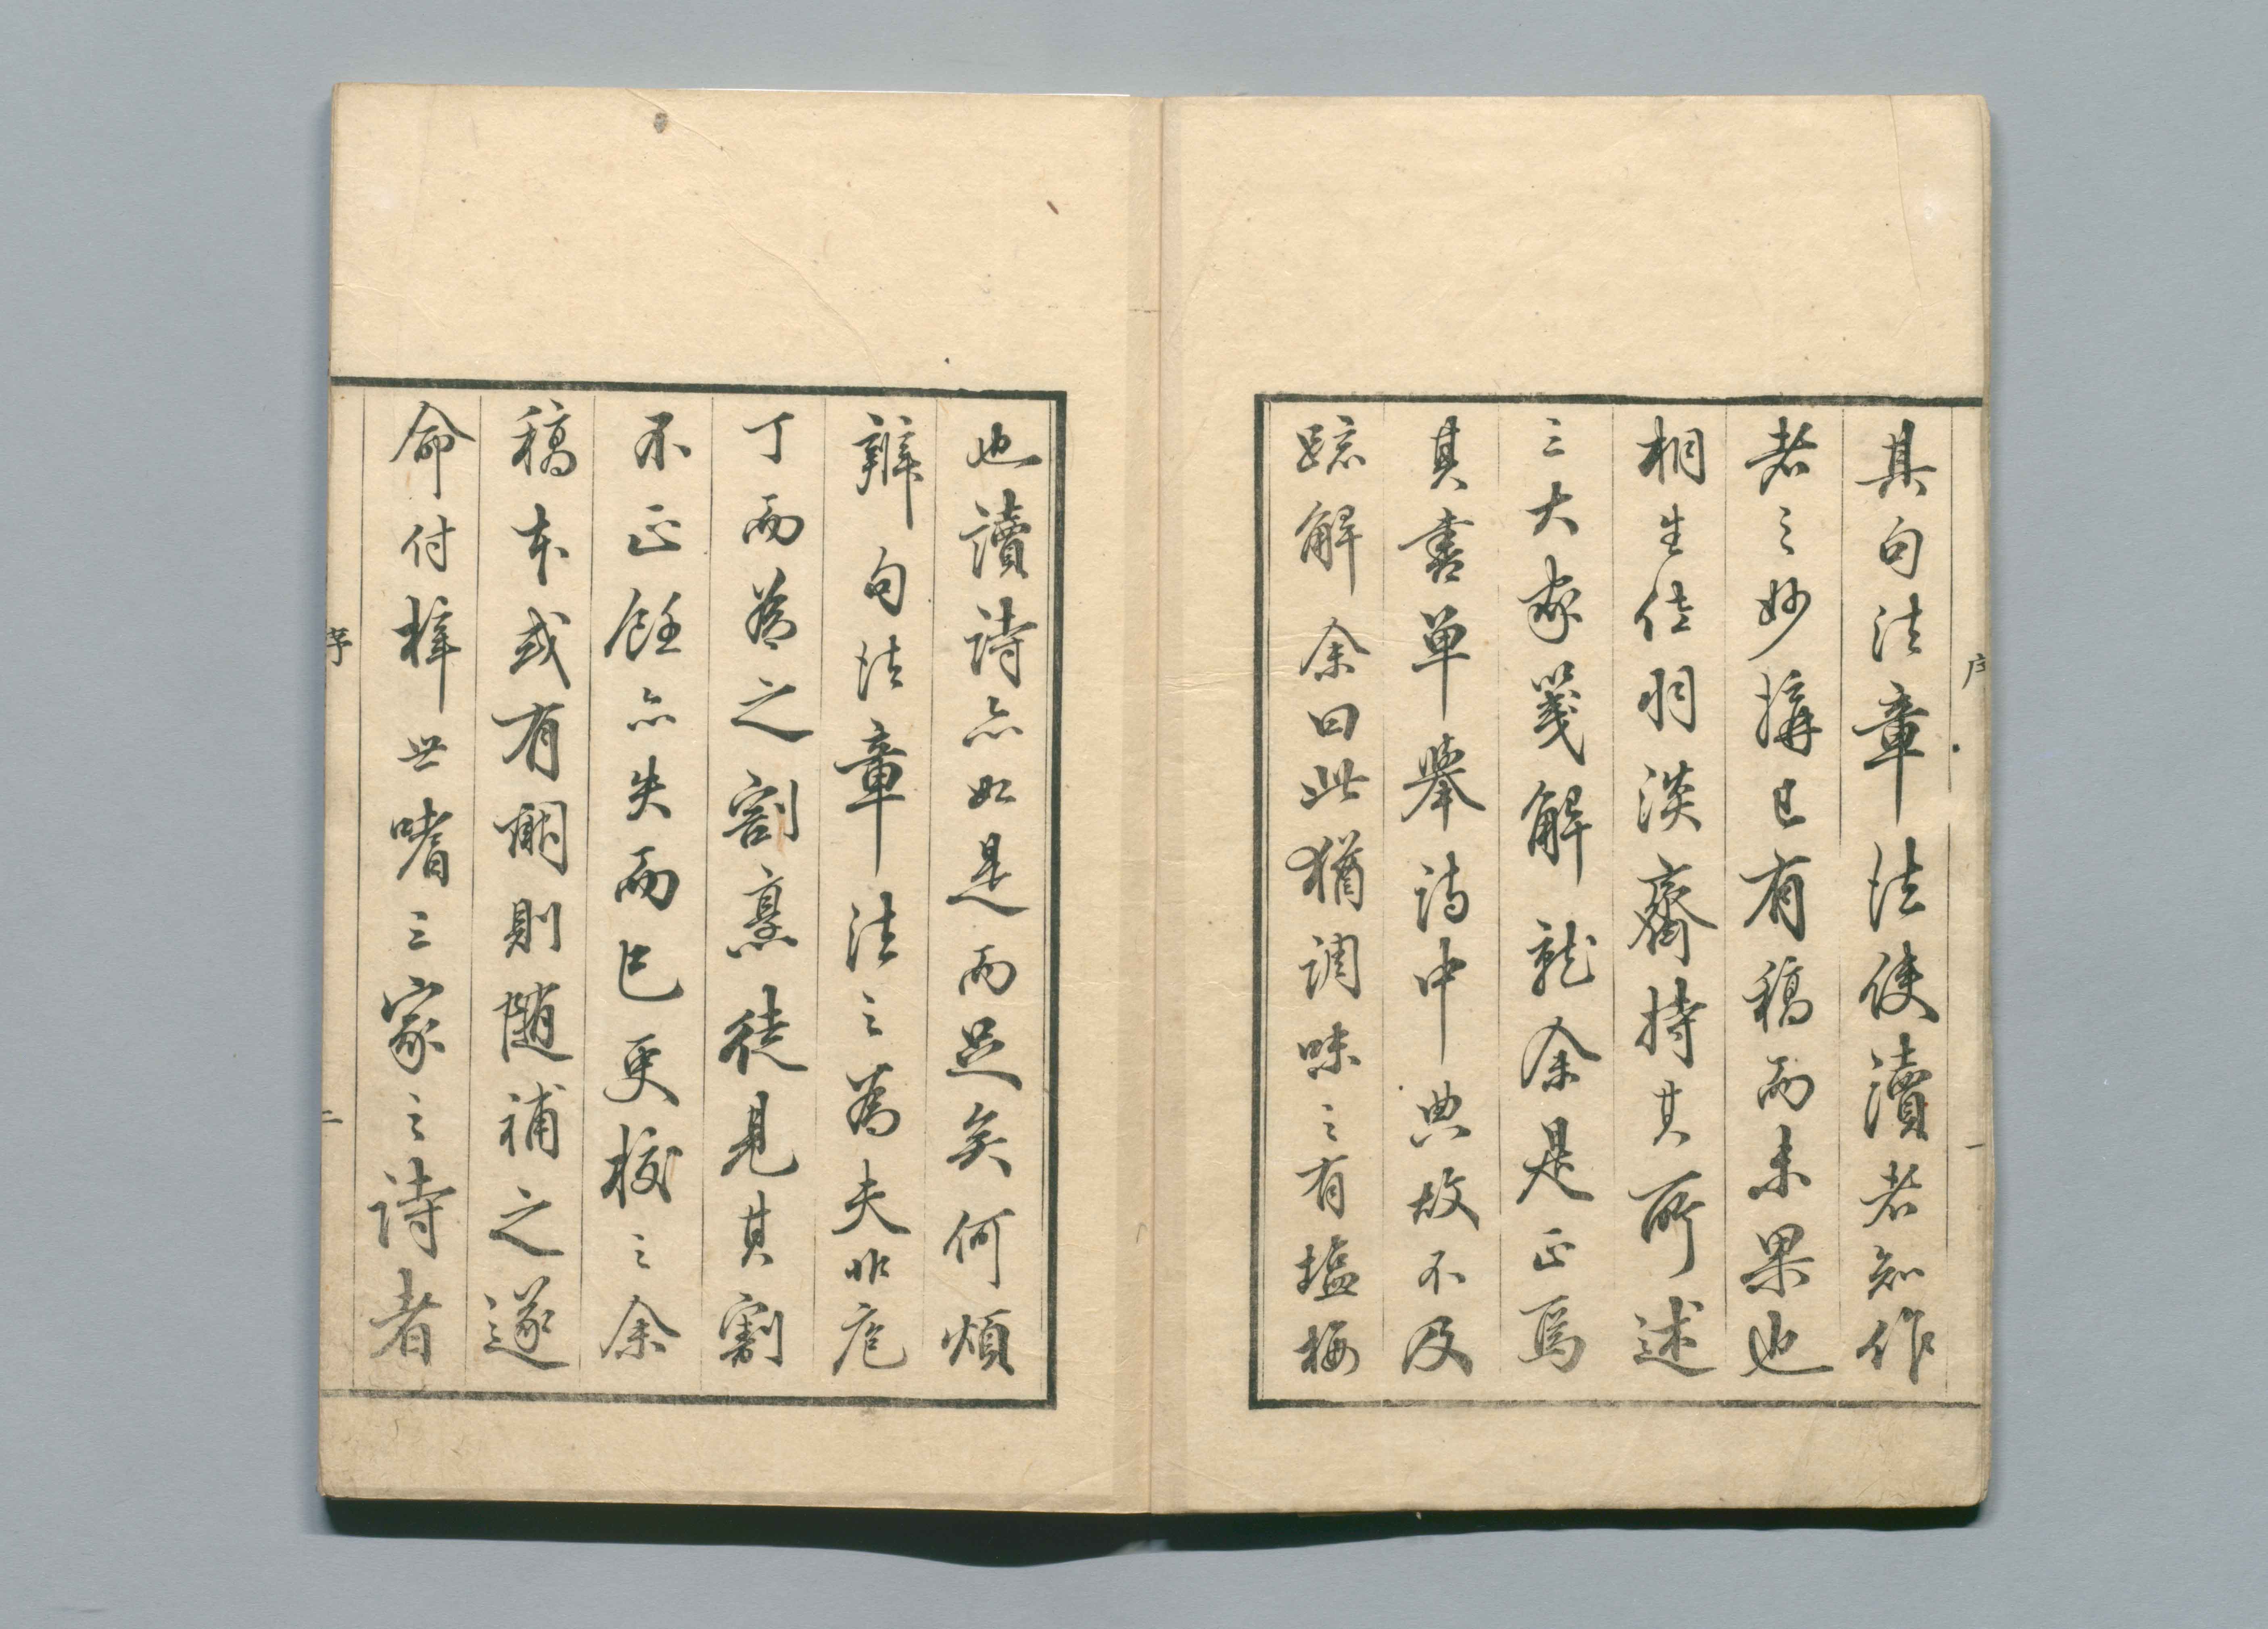 其句法章法使讀者知作
者之妙搆已有稿而未果也
相生佐羽淡齋持其所述
三大家箋解就余是正焉
其書單舉詩中典故不及
疏解余曰此猶調味之有塩梅
也讀詩亦如是而足矣何煩
辨句法章法之為夫非庖
丁而為之割烹徒見其割
不正飪亦失而已更校之余
稿本或有闕則随補之遂
命付梓世嗜三家之詩者
序
一
序
二